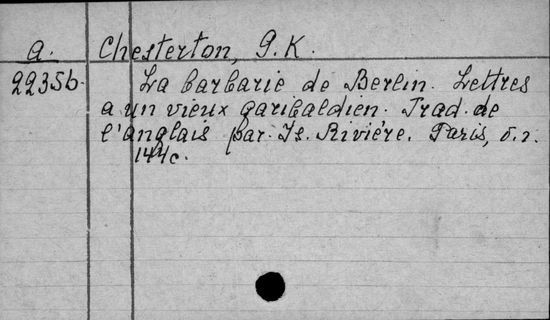 a. Chesterton, G.K.
2235b. La barbarie de Berlin. Lettres
a un vieux garibaldien. Trad. de
l'anglais par. Is. Rivière. Paris, б.г.
144с.